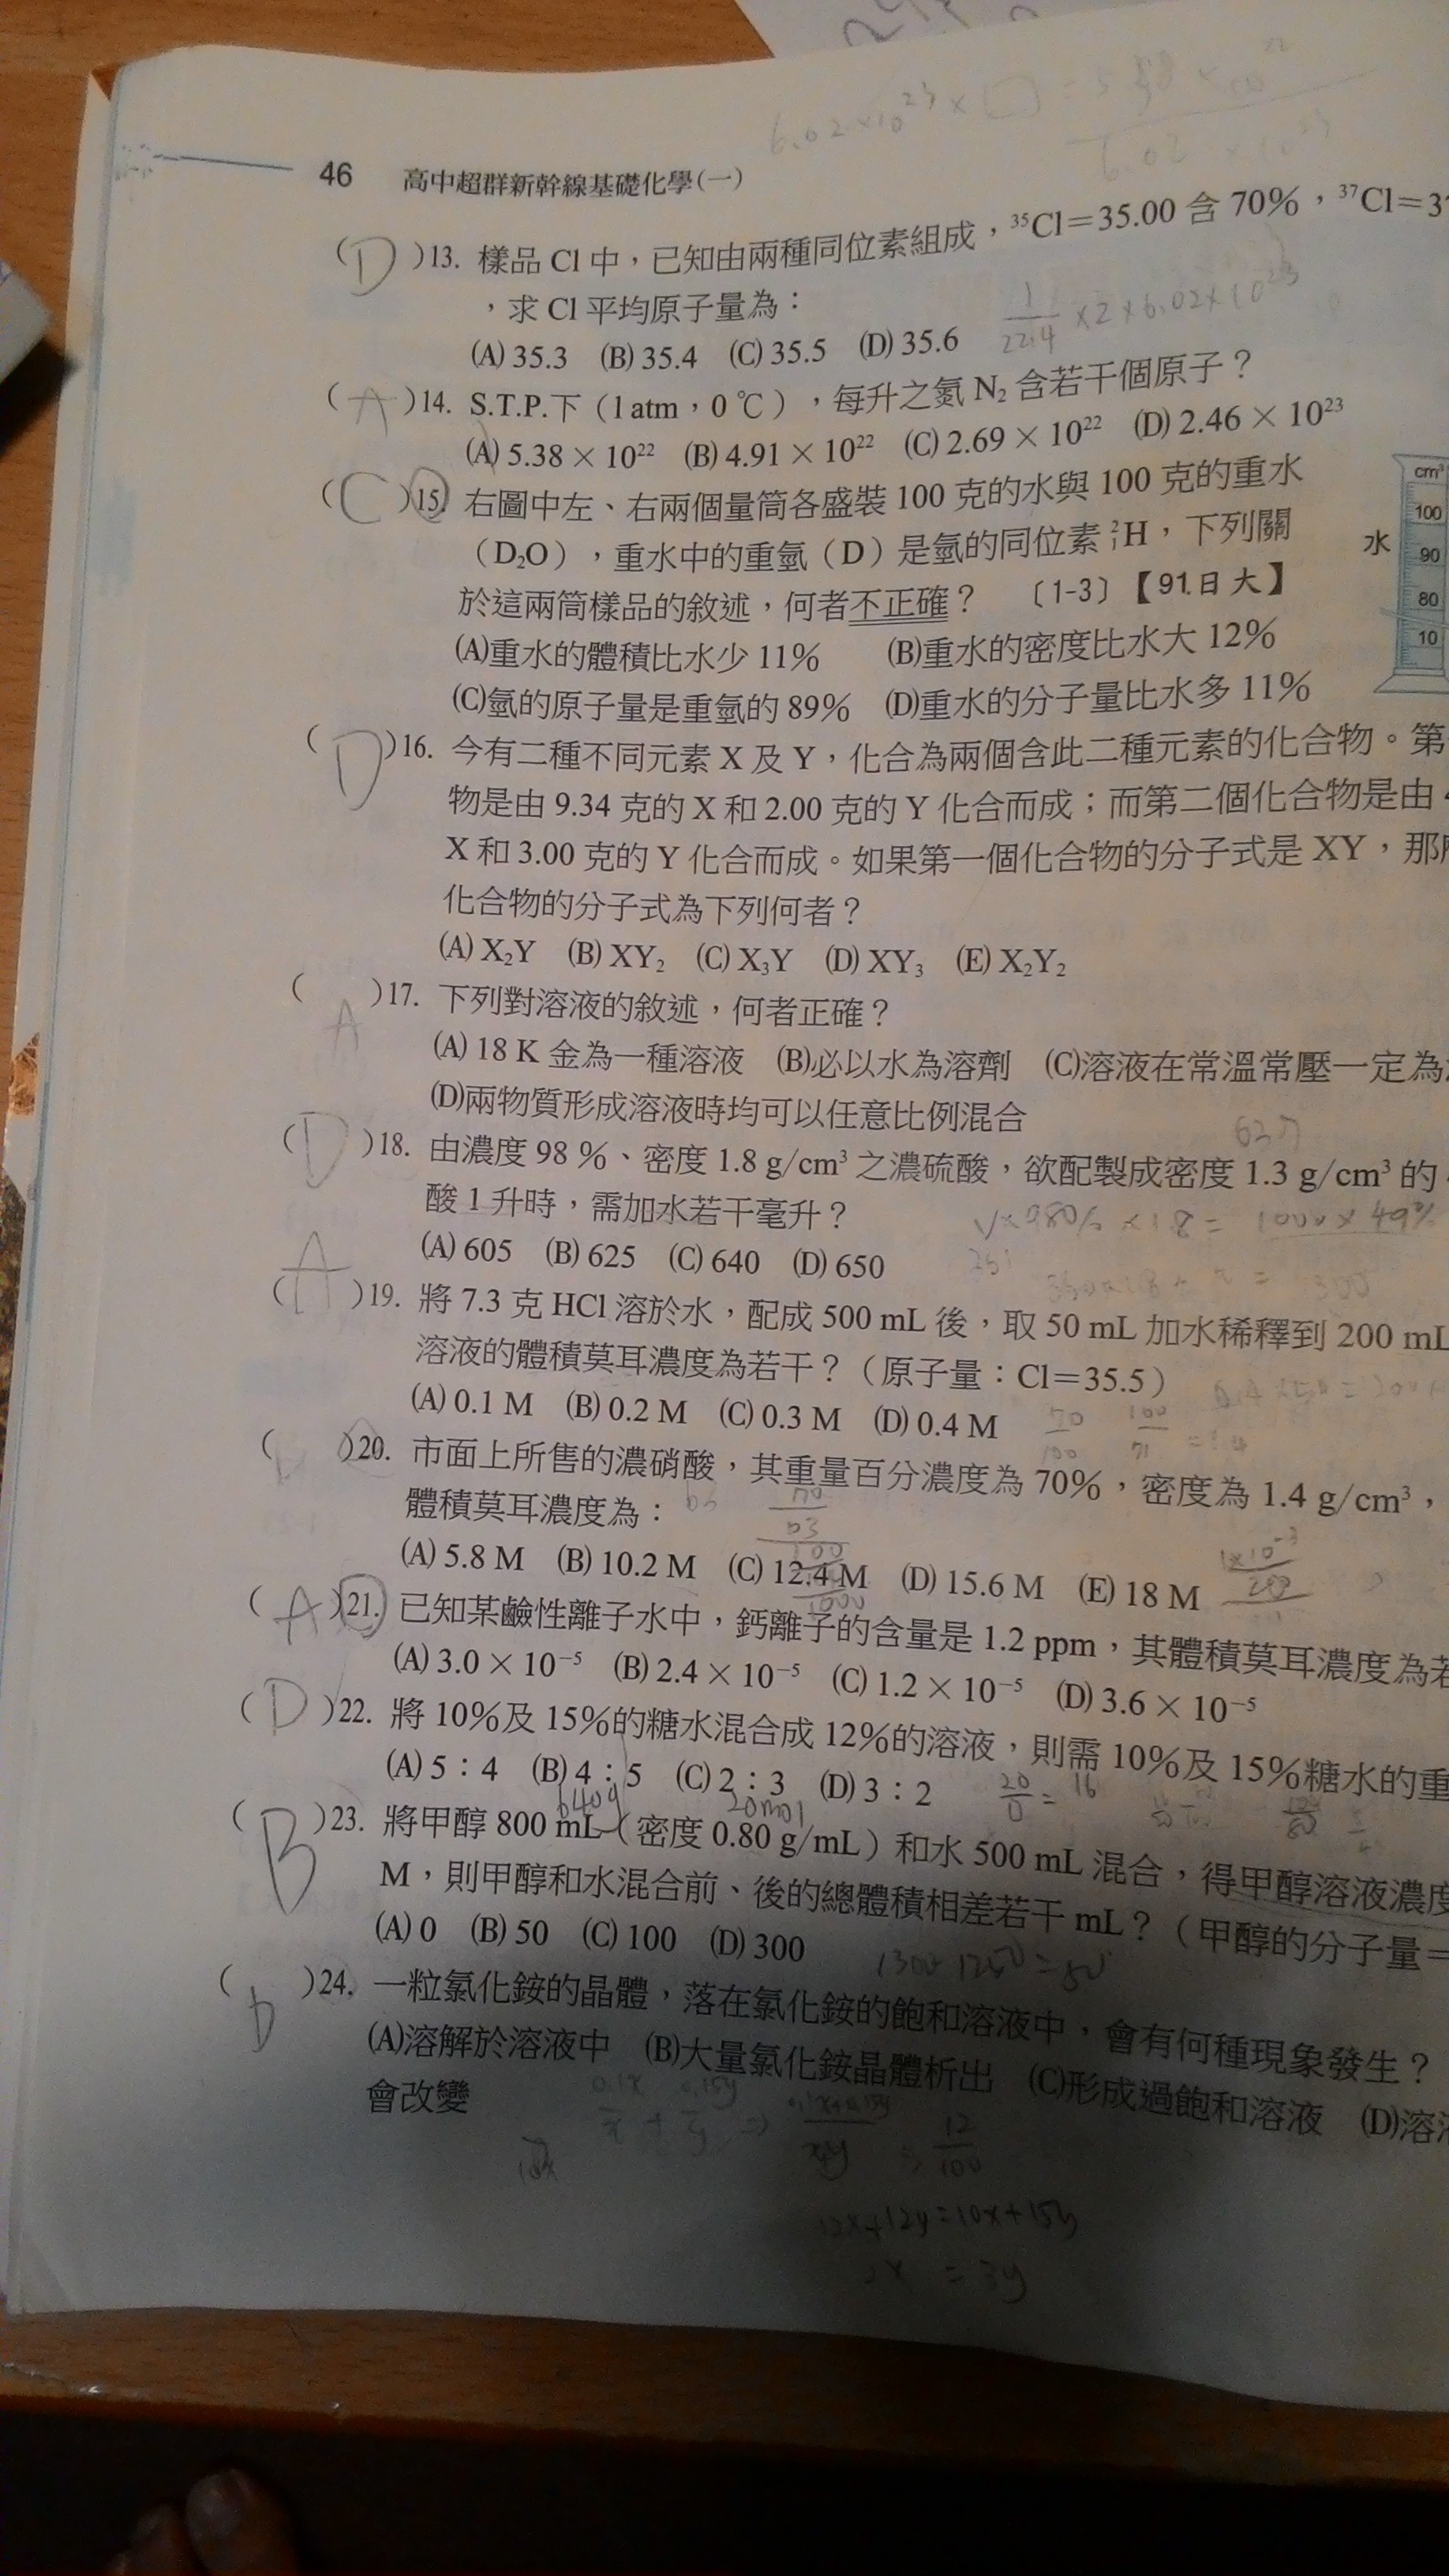 6.02×10²³×□=5.38×10²²
6.02×10²³
46 高中超群新幹線基礎化學(一)
(D)13. 樣品 Cl 中，已知由兩種同位素組成，³⁵Cl＝35.00 含 70%，³⁷Cl＝37
，求 Cl 平均原子量為：
1/22.4 ×2×6.02×10²³
(A) 35.3 (B) 35.4 (C) 35.5 (D) 35.6
(A)14. S.T.P.下（1 atm，0 ℃），每升之氮 N₂ 含若干個原子？
(A) 5.38 × 10²² (B) 4.91 × 10²² (C) 2.69 × 10²² (D) 2.46 × 10²³
(C)15. 右圖中左、右兩個量筒各盛裝 100 克的水與 100 克的重水
（D₂O），重水中的重氫（D）是氫的同位素 ²₁H，下列關
於這兩筒樣品的敘述，何者不正確？ 〔1-3〕【91.日大】
(A)重水的體積比水少 11% (B)重水的密度比水大 12%
(C)氫的原子量是重氫的 89% (D)重水的分子量比水多 11%
水
cm³
100
90
80
10
(D)16. 今有二種不同元素 X 及 Y，化合為兩個含此二種元素的化合物。第
物是由 9.34 克的 X 和 2.00 克的 Y 化合而成；而第二個化合物是由
X 和 3.00 克的 Y 化合而成。如果第一個化合物的分子式是 XY，那
化合物的分子式為下列何者？
(A) X₂Y (B) XY₂ (C) X₃Y (D) XY₃ (E) X₂Y₂
(A)17. 下列對溶液的敘述，何者正確？
(A) 18 K 金為一種溶液 (B)必以水為溶劑 (C)溶液在常溫常壓一定為
(D)兩物質形成溶液時均可以任意比例混合
(D)18. 由濃度 98 %、密度 1.8 g/cm³ 之濃硫酸，欲配製成密度 1.3 g/cm³ 的
酸 1 升時，需加水若干毫升？
V×98%×1.8=1000×49%
(A) 605 (B) 625 (C) 640 (D) 650
(A)19. 將 7.3 克 HCl 溶於水，配成 500 mL 後，取 50 mL 加水稀釋到 200 mL
溶液的體積莫耳濃度為若干？（原子量：Cl＝35.5）
(A) 0.1 M (B) 0.2 M (C) 0.3 M (D) 0.4 M
( )20. 市面上所售的濃硝酸，其重量百分濃度為 70%，密度為 1.4 g/cm³，
體積莫耳濃度為：
(A) 5.8 M (B) 10.2 M (C) 12.4 M (D) 15.6 M (E) 18 M
(A)21. 已知某鹼性離子水中，鈣離子的含量是 1.2 ppm，其體積莫耳濃度為若
(A) 3.0 × 10⁻⁵ (B) 2.4 × 10⁻⁵ (C) 1.2 × 10⁻⁵ (D) 3.6 × 10⁻⁵
(D)22. 將 10%及 15%的糖水混合成 12%的溶液，則需 10%及 15%糖水的重
(A) 5：4 (B) 4：5 (C) 2：3 (D) 3：2
640g 20mol
(B)23. 將甲醇 800 mL（密度 0.80 g/mL）和水 500 mL 混合，得甲醇溶液濃度
M，則甲醇和水混合前、後的總體積相差若干 mL？（甲醇的分子量＝
(A) 0 (B) 50 (C) 100 (D) 300
1300-1250=50
(D)24. 一粒氯化銨的晶體，落在氯化銨的飽和溶液中，會有何種現象發生？
(A)溶解於溶液中 (B)大量氯化銨晶體析出 (C)形成過飽和溶液 (D)溶
會改變
12/100
12x+12y=10x+15y
2x=3y